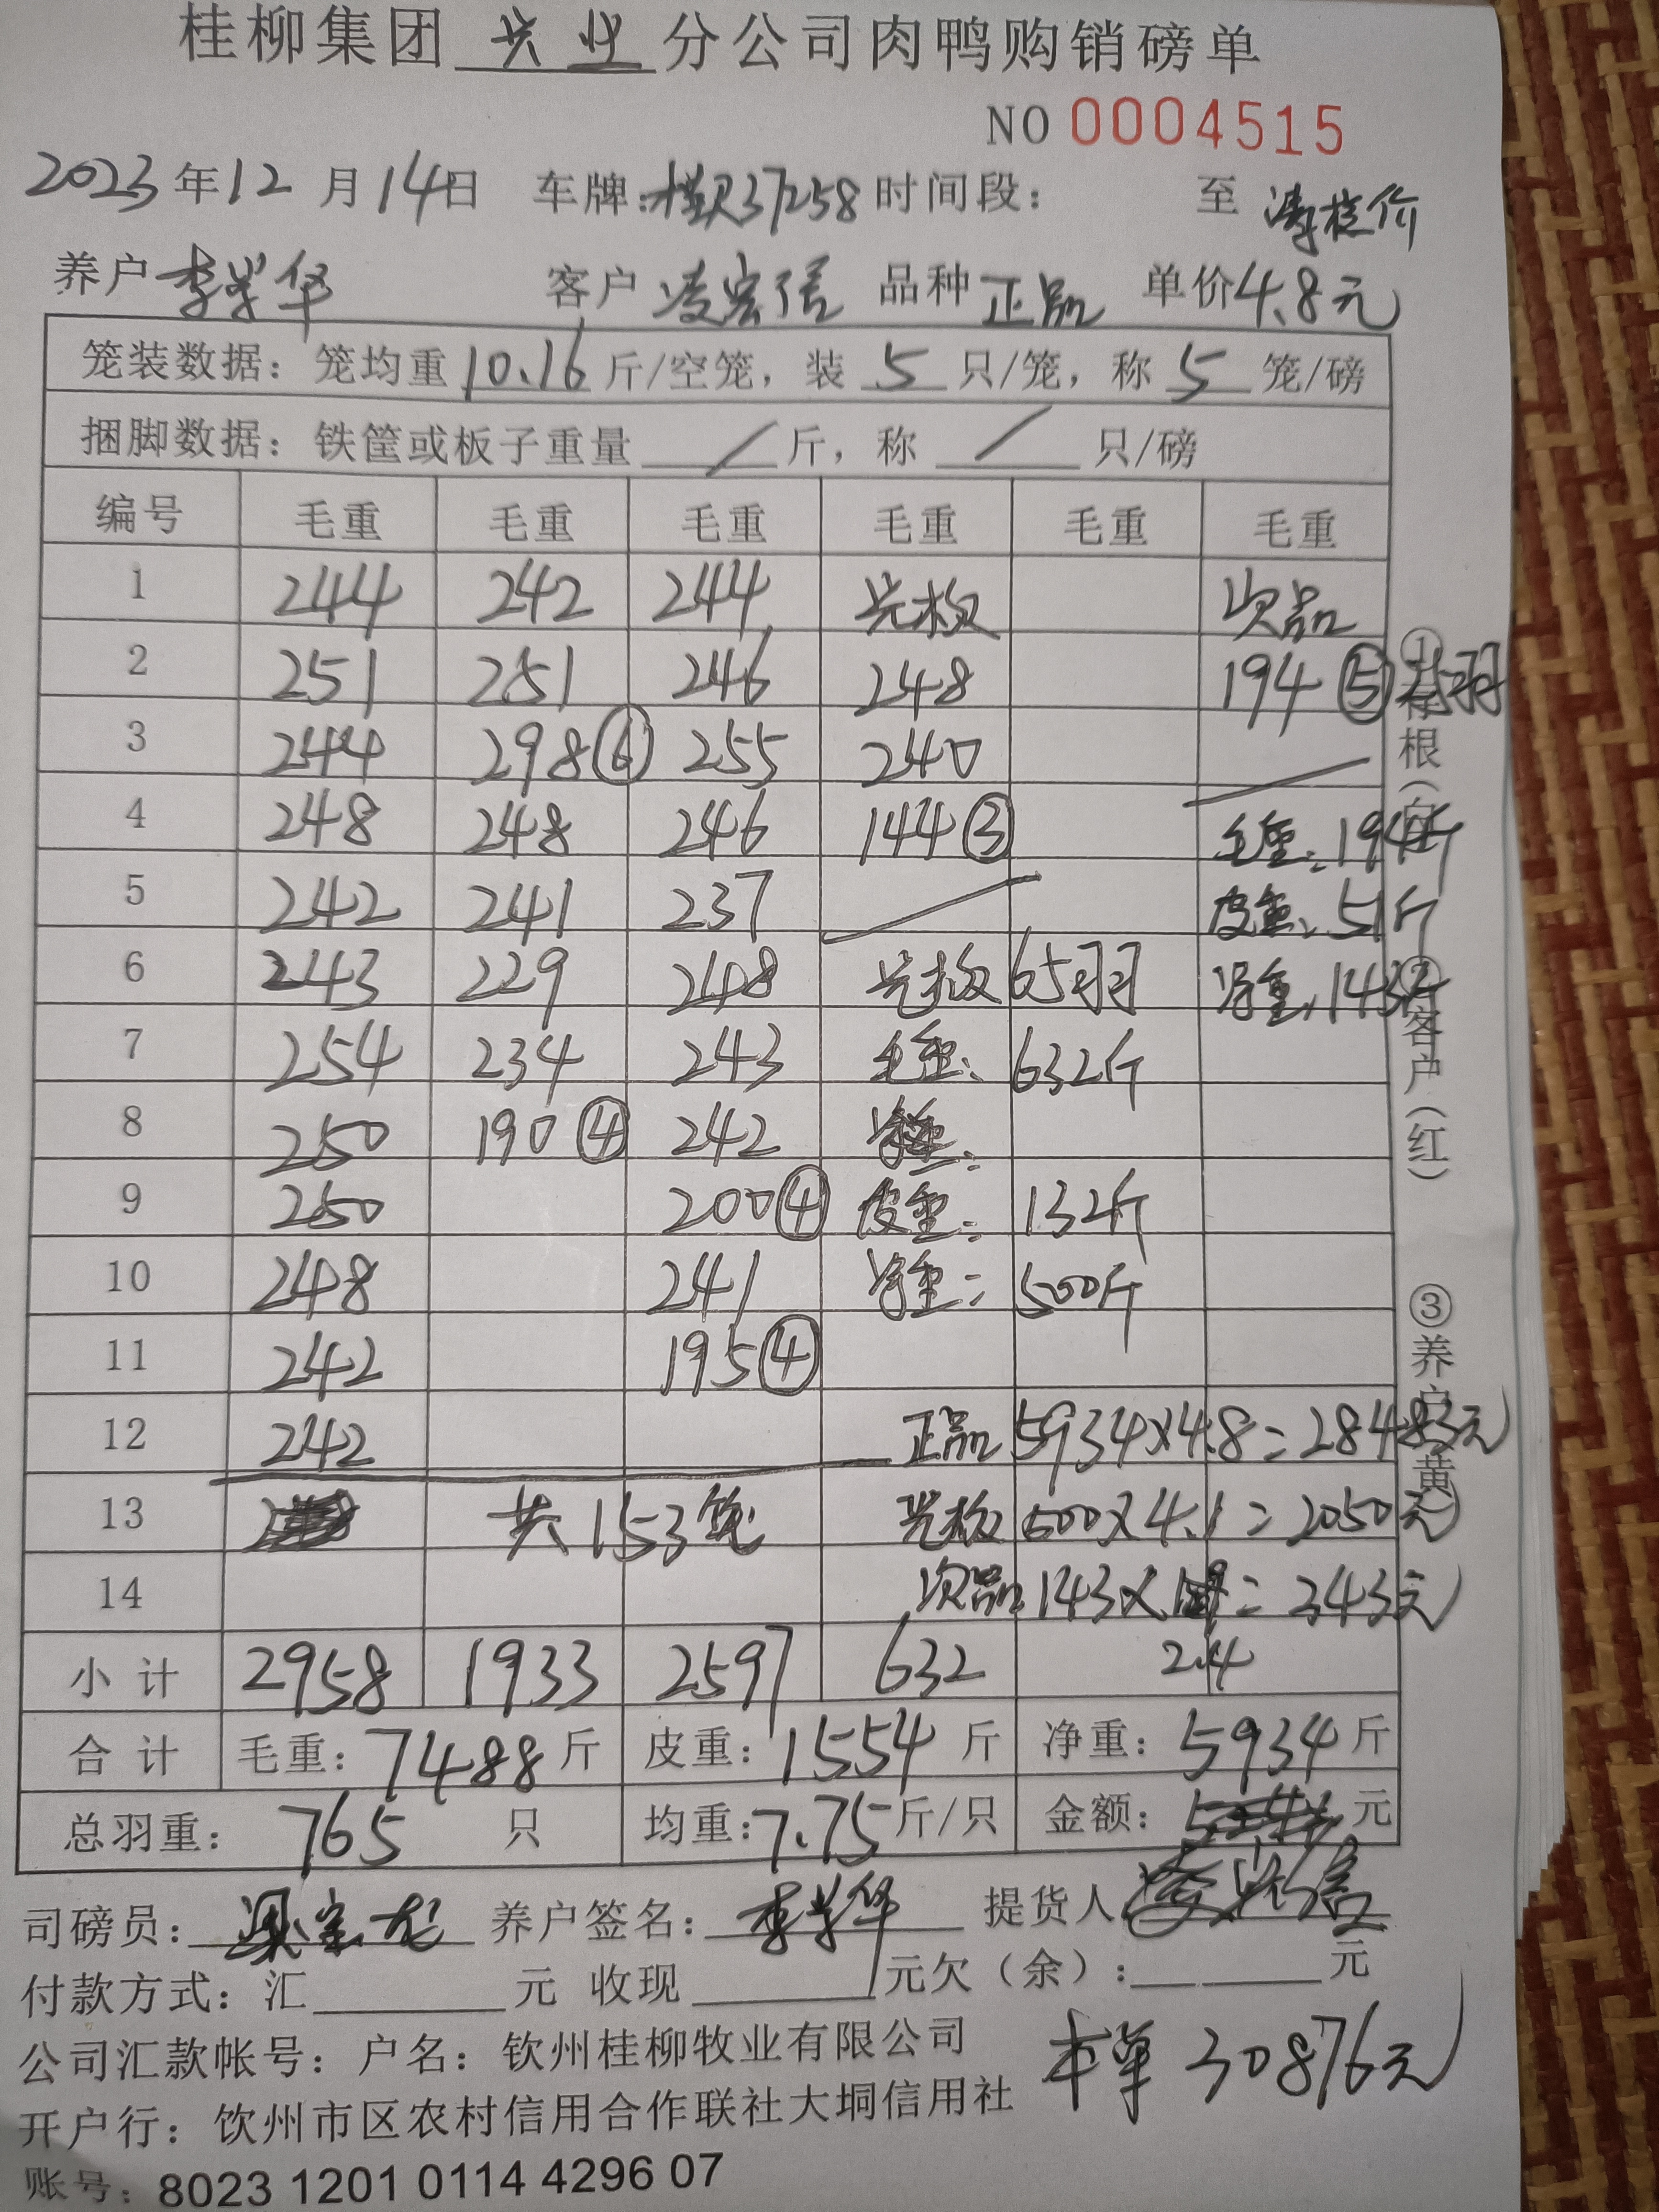 桂柳集团 兴业 分公司肉鸭购销磅单
NO 0004515
2023 年 12 月 14 日 车牌: 桂R37258 时间段: 至
养户 李学华 客户 凌宏信 品种 正品 单价 4.8元
笼装数据: 笼均重 10.16 斤/空笼, 装 5 只/笼, 称 5 笼/磅
捆脚数据: 铁筐或板子重量 / 斤, 称 / 只/磅
编号 毛重 毛重 毛重 毛重 毛重 毛重
1 244 242 244 光板 次品
2 251 251 246 248 194 ⑤
3 244 298⑥ 255 240
4 248 248 246 144③ 毛重: 194斤
5 242 241 237 皮重: 51斤
6 243 229 248 光板 65羽 净重: 143斤
7 254 234 243 毛重: 632斤
8 250 190④ 242
9 250 200④ 皮重: 132斤
10 248 241 净重: 500斤
11 242 195④
12 242 正品 5934×4.8=28483元
13 共153笼 光板 500×4.1=2050元
14 次品 143× =343元
2.4
小计 2958 1933 2597 632
合计 毛重: 7488 斤 皮重: 1554 斤 净重: 5934 斤
总羽重: 765 只 均重: 7.75 斤/只 金额: 元
司磅员: 养户签名: 李学华 提货人 凌宏信
付款方式: 汇 元 收现 元欠(余): 元
公司汇款帐号: 户名: 钦州桂柳牧业有限公司
本单 30876元
开户行: 钦州市区农村信用合作联社大垌信用社
账号: 8023 1201 0114 4296 07
①存根(白)
②客户(红)
③养户 黄